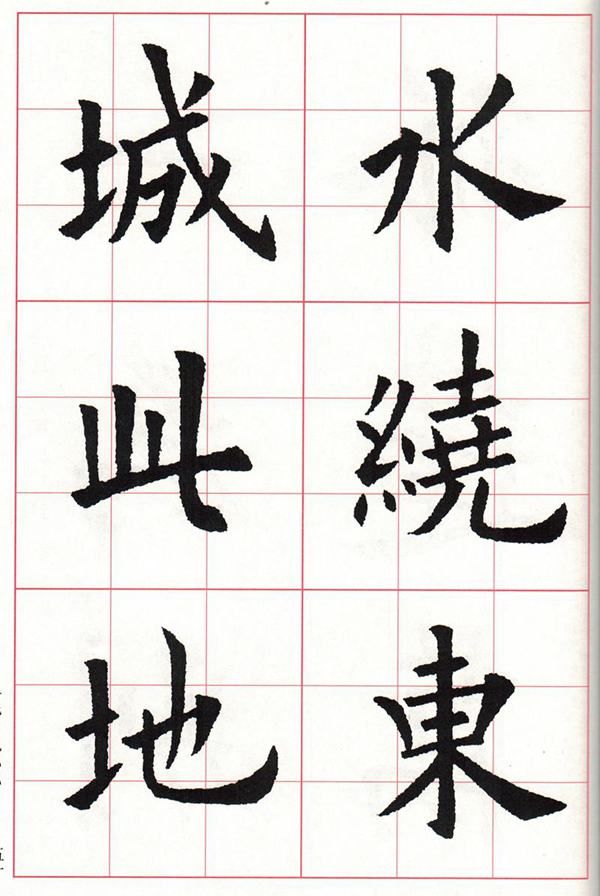 水繞東
城此地